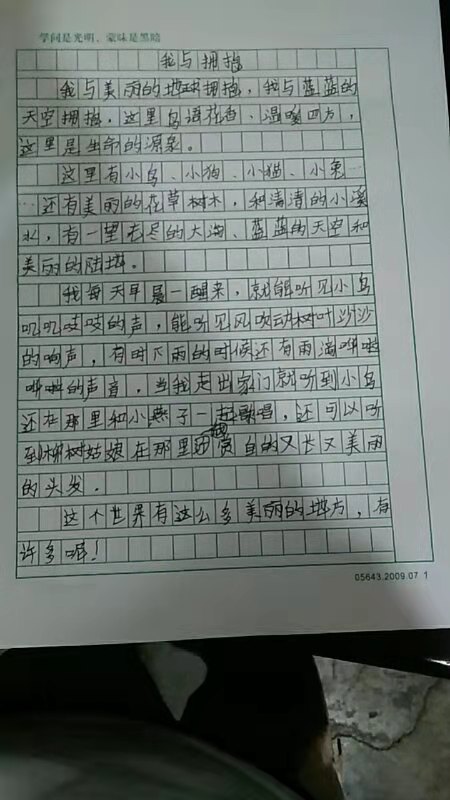 学问是光明，蒙昧是黑暗
我与拥抱
我与美丽的地球拥抱，我与蓝蓝的
天空拥抱，这里鸟语花香、温暖四方，
这里是生命的源泉。
这里有小鸟、小狗、小猫、小兔…
…还有美丽的花草树木，和清清的小溪
水，有一望无尽的大海、蓝蓝的天空和
美丽的陆地。
我每天早晨一醒来，就能听见小鸟
叽叽吱吱的声，能听见风吹动树叶沙沙
的响声，有时下雨的时候还有雨滴哗啦
哗啦的声音，当我走出家门就听到小鸟
还在那里和小燕子一起歌唱，还可以听
到柳树姑娘在那里赏自的又长又美丽
的头发．
这个世界有这么多美丽的地方，有
许多呢！
05643.2009.07 1